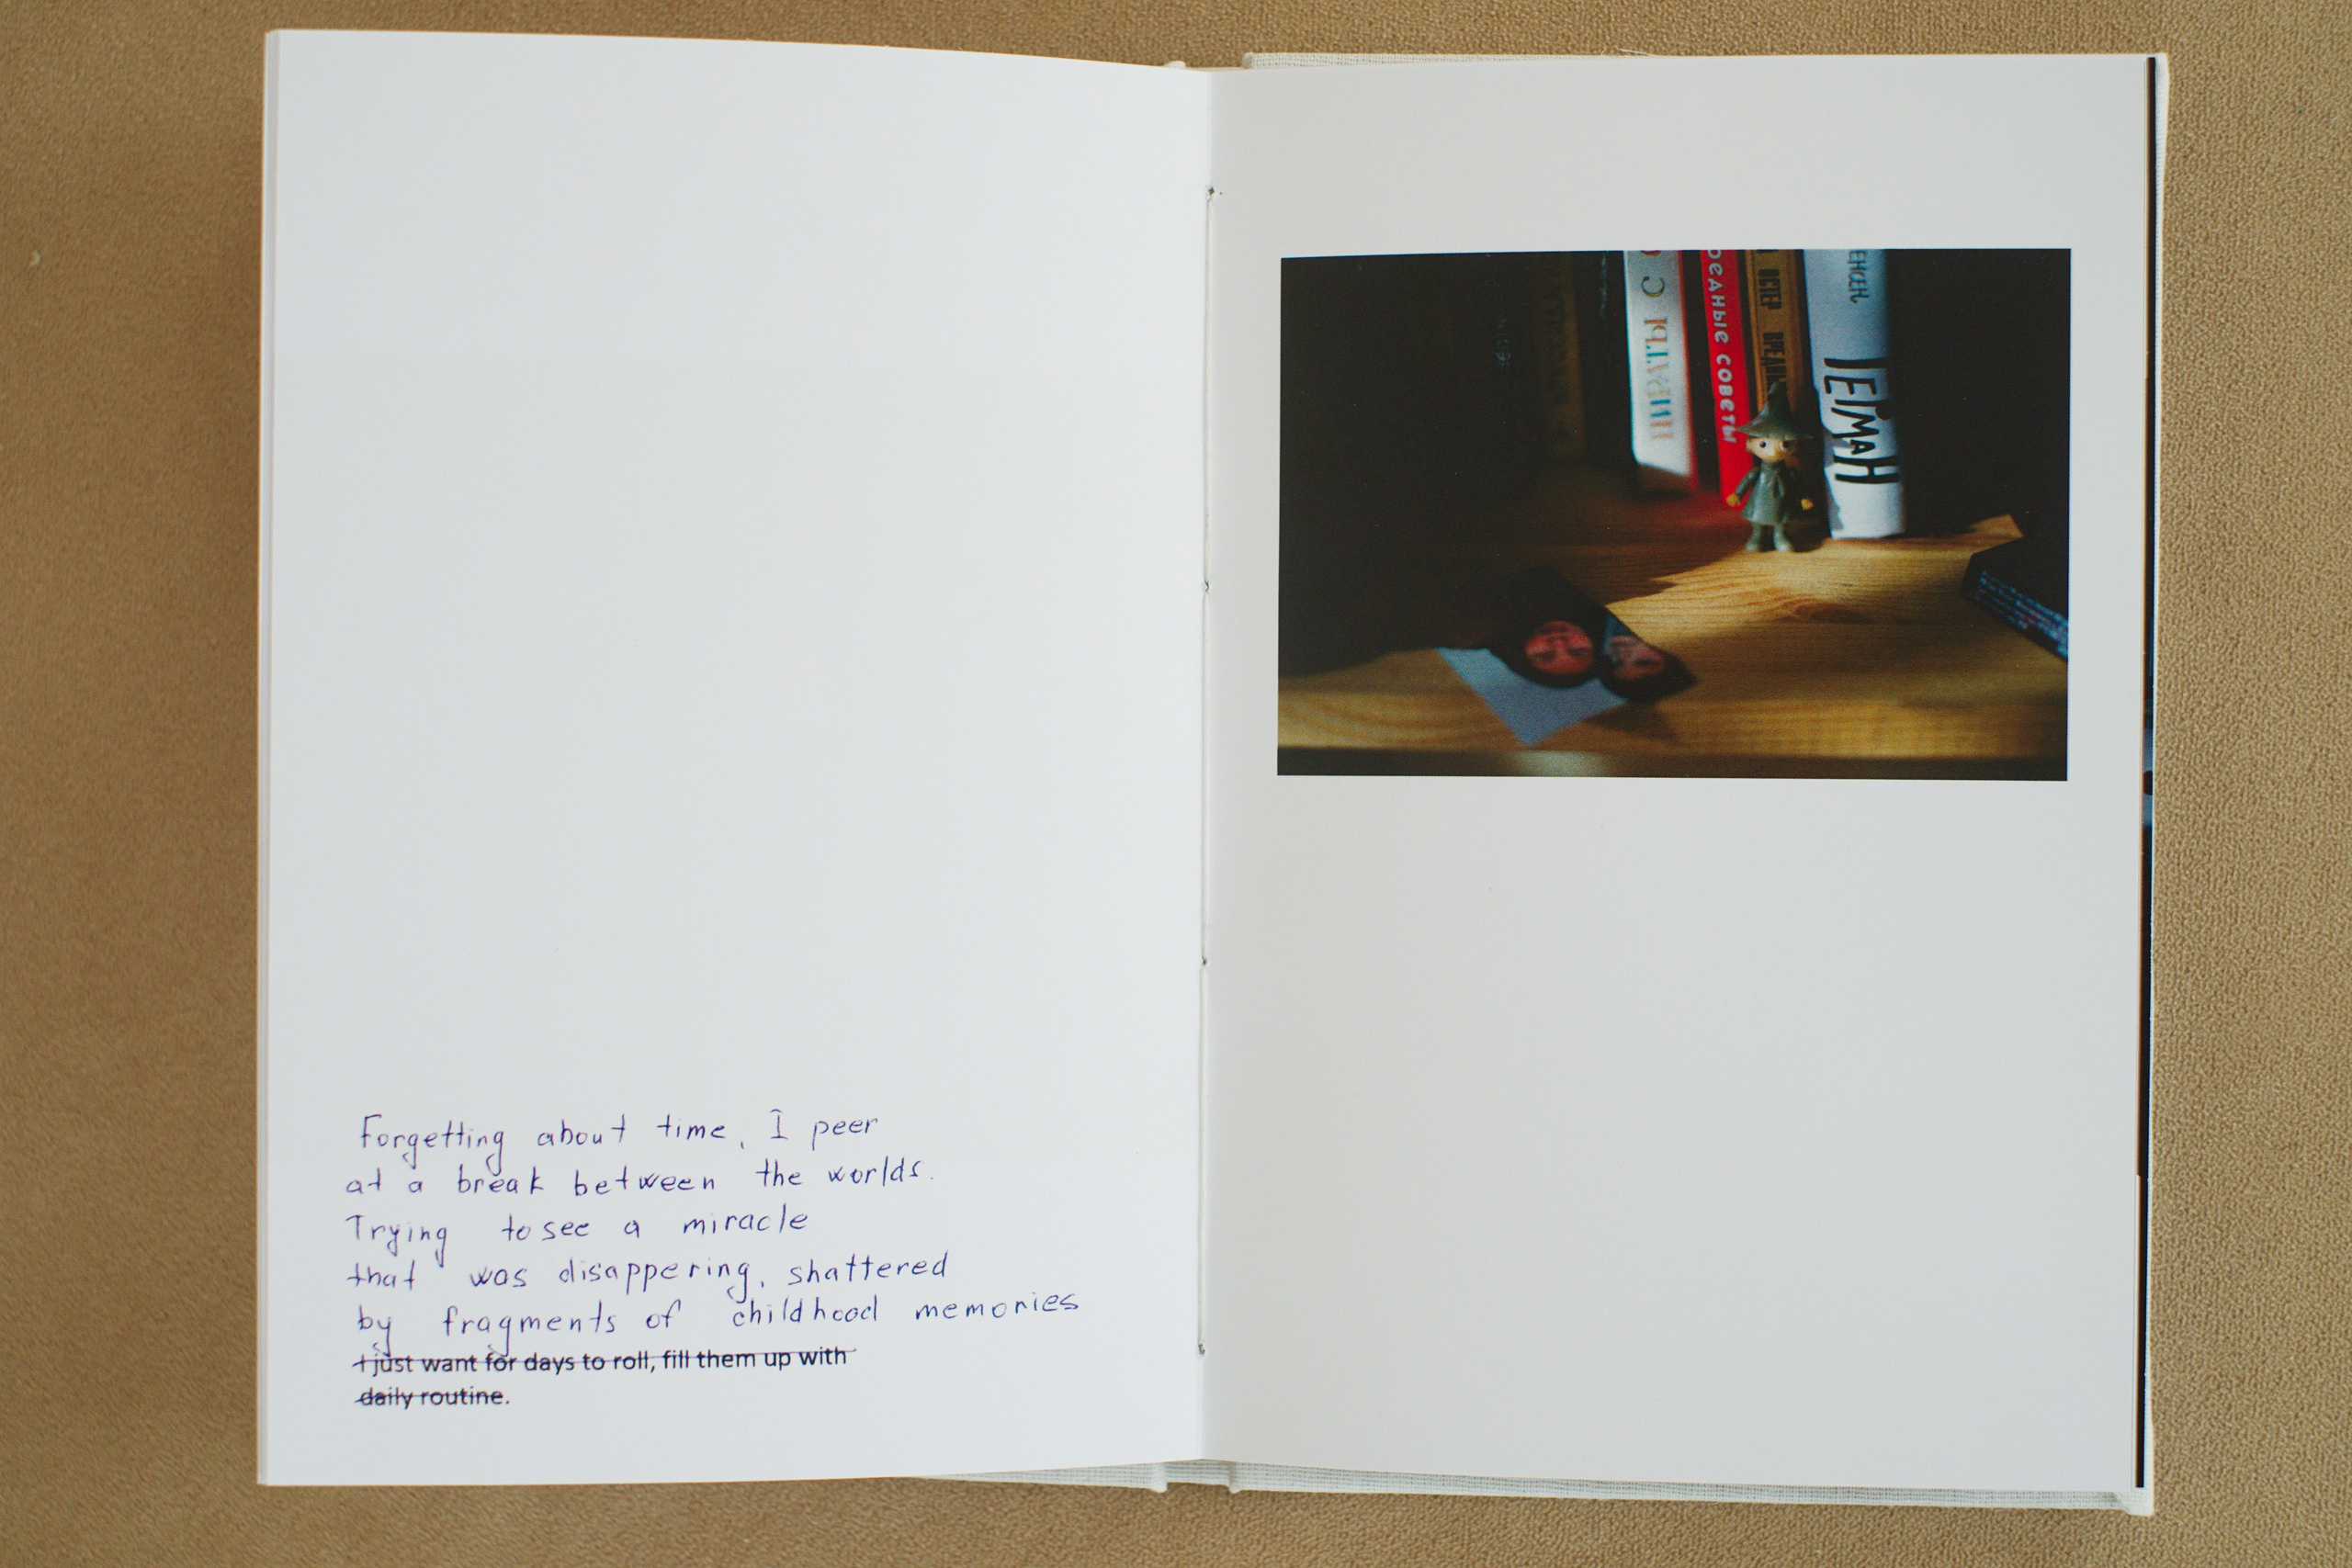 Forgetting about time, I peer
at a break between the worlds.
Trying to see a miracle
that was disappering, shattered
by fragments of childhood memories
I just want for days to roll, fill them up with
daily routine.
ПИРАТЫ С
РЕДНЫЕ СОВЕТЫ
ОСТЕР
ЕНСЕН
ГЕРМАН